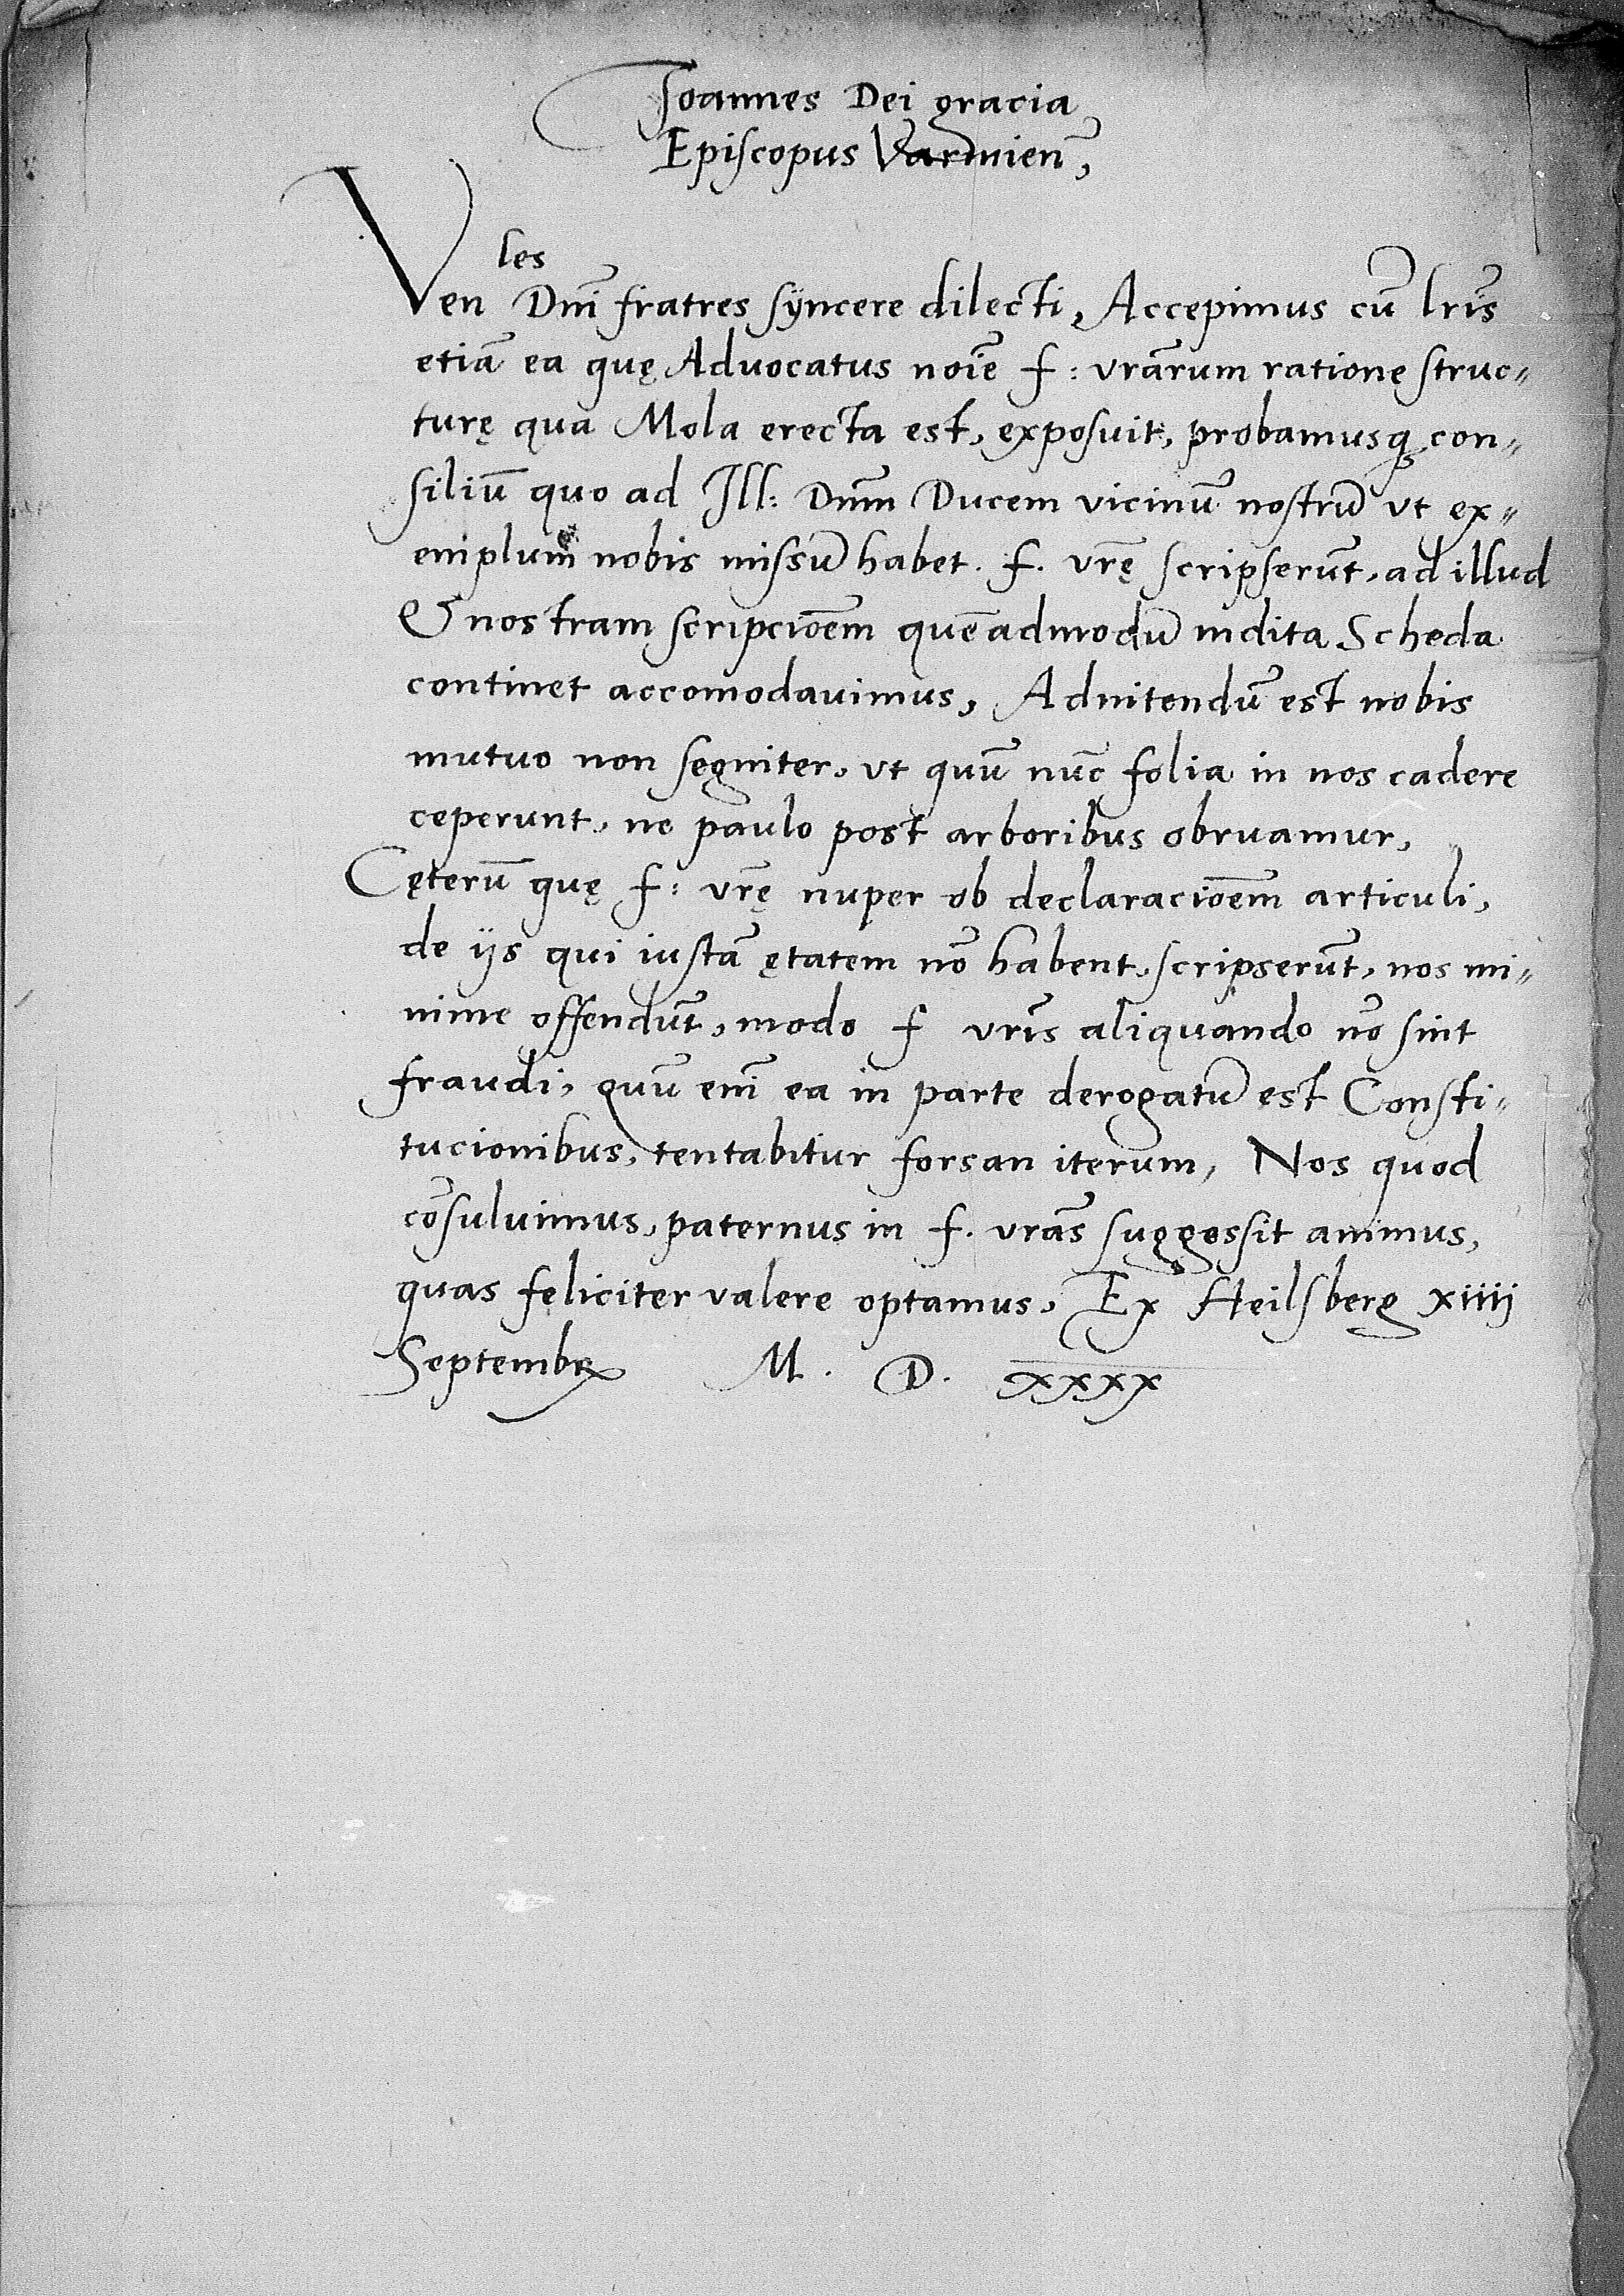 Joannes Dei gracia
Episcopus Varmien̄,
Venles Dn̄i fratres syncere dilecti, Accepimus cū lr̄is
etiā ea quę Advocatus noīe f: vr̄arum ratione struc-
turę qua Mola erecta est, exposuit, probamusq con-
siliū quo ad Ill: Dnm̄ Ducem vicinū nostrū vt ex-
emplum nobis missū habet. f. vr̄ę scripserūt, ad illud
& nostram scripciōem quēadmodū indita Scheda
continet accomodauimus, Adnitendū est nobis
mutuo non segniter, vt quū nūc folia in nos cadere
ceperunt, ne paulo post arboribus obruamur,
Cęterū quę f: vr̄ę nuper ob declaraciōem articuli,
de ijs qui iustā ętatem nō habent, scripserūt, nos mi-
nime offendūt, modo f vr̄is aliquando nō sint
fraudi, quū enī ea in parte derogatū est Consti-
tucionibus, tentabitur forsan iterum, Nos quod
cōsuluimus, paternus in f. vr̄as suggessit animus,
quas feliciter valere optamus, Ex Heilsberg xiiij
Septembꝝ M. D. xxxx